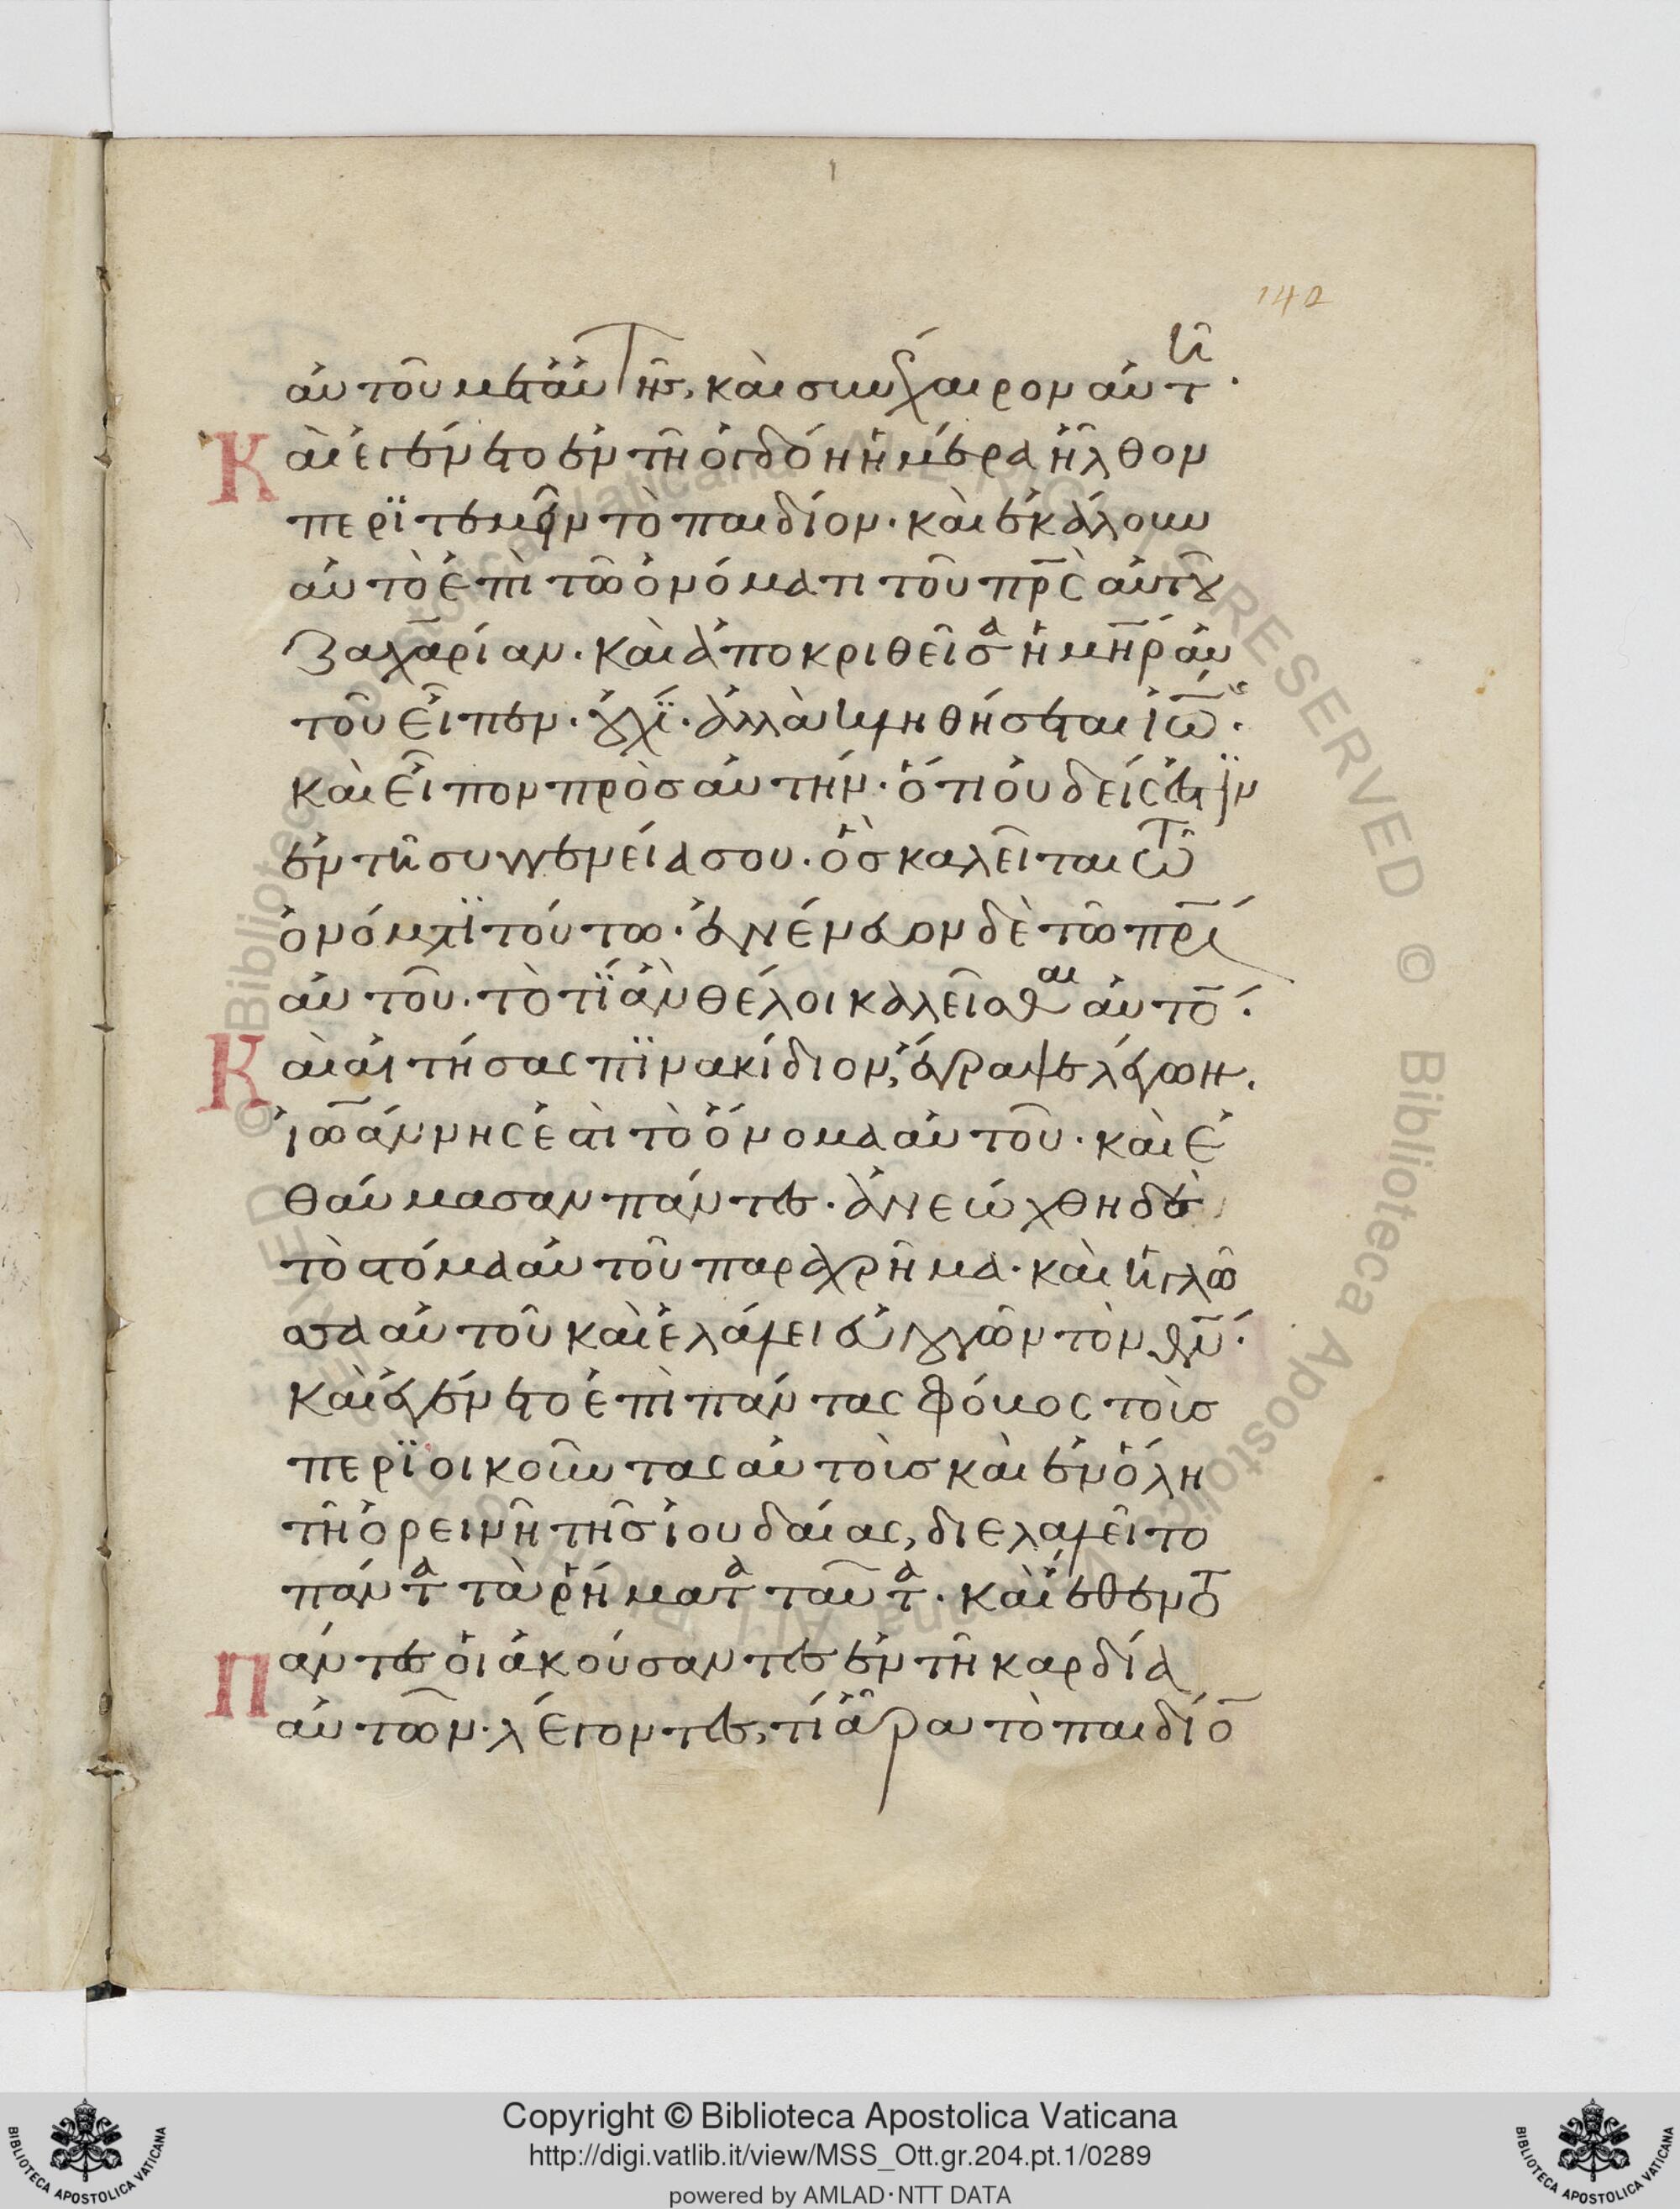 142
αὐτοῦ μετ' αὐτῆς, καὶ συνέχαιρον αὐτῆ·
Καὶ ἐγένετο ἐν τῆ ὀγδόη ἡμέρα ἦλθον
περϊτεμεῖν τὸ παιδίον· καὶ ἐκάλουν
αὐτὸ ἐπὶ τῶ ὀνόματι τοῦ πρ̅ς αὐτοῦ
Ζαχαρίαν· καὶ ἀποκριθεῖσα ἡ μη̅ρ αὐ
τοῦ εἶπεν· οὐχί· ἀλλὰ κληθήσεται ἰω̅·
καὶ εἶπον πρὸς αὐτήν· ὅτι οὐδείς ἐστϊν
ἐν τῆ συγγενεία σου· ὃς καλεῖται τῶ
ὀνόματϊ τούτω· ἐνένευον δὲ τῶ πρ̅ι
αὐτοῦ· τὸ τί ἂν θέλοι καλεῖσθαι αὐτό̅·
Καὶ αἰτήσας πϊνακίδιον, ἔγραψε λέγων·
ἰωάννης ἐστὶ τὸ ὄνομα αὐτοῦ· καὶ ἐ
θαύμασαν πάντες· ἀνεώχθη δὲ
τὸ στόμα αὐτοῦ παραχρῆμα· καὶ ἡ γλῶ
σσα αὐτοῦ καὶ ἐλάλει εὐλογῶν τὸν θν̅·
καὶ ἐγένετο ἐπὶ πάντας φόβος τοὺς
περϊοικοῦντας αὐτοὺς καὶ ἐν ὅλη
τῆ ὀρεινῆ τῆς ἰουδαίας, διελαλεῖτο
πάντα τὰ ῥήματα ταῦτα· καὶ ἔθεντο
Πάντες οἱ ἀκούσαντες ἐν τῆ καρδία
αὐτῶν· λέγοντες, τί ἄρα τὸ παιδίο̅
Copyright © Biblioteca Apostolica Vaticana
http://digi.vatlib.it/view/MSS_Ott.gr.204.pt.1/0289
powered by AMLAD·NTT DATA
BIBLIOTECA APOSTOLICA VATICANA
BIBLIOTECA APOSTOLICA VATICANA